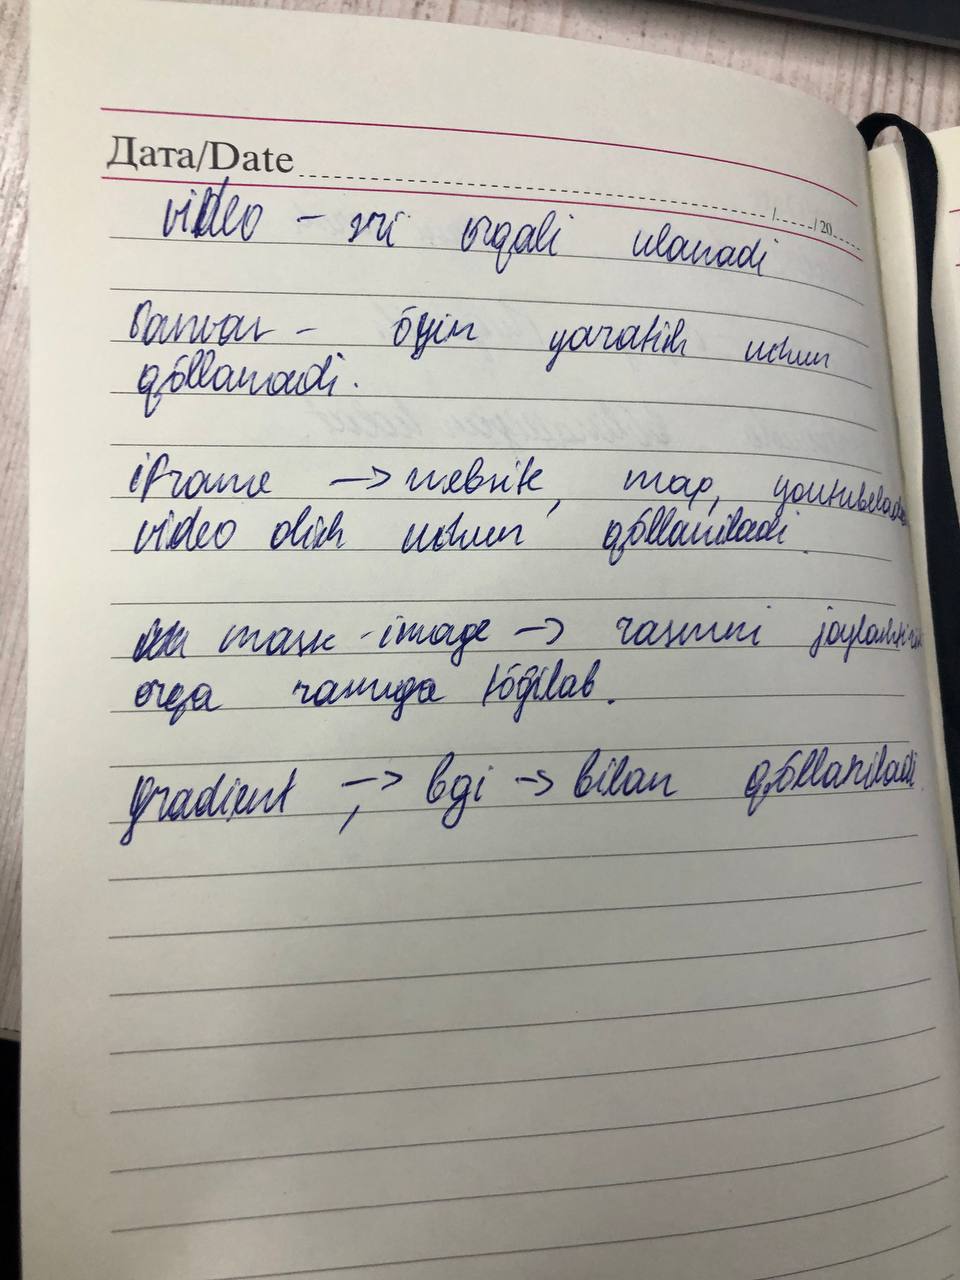 Дата/Date / /20
video - sri orqali ulanadi
Canvas - óyin yaratish uchun
qóllanadi.
iframe -> website, map, youtubedan
video olish uchun qóllaniladi.
mask-image -> rasmni joylashtirish
orqa rasmga tógilab.
gradient, -> bgi -> bilan qóllaniladi.